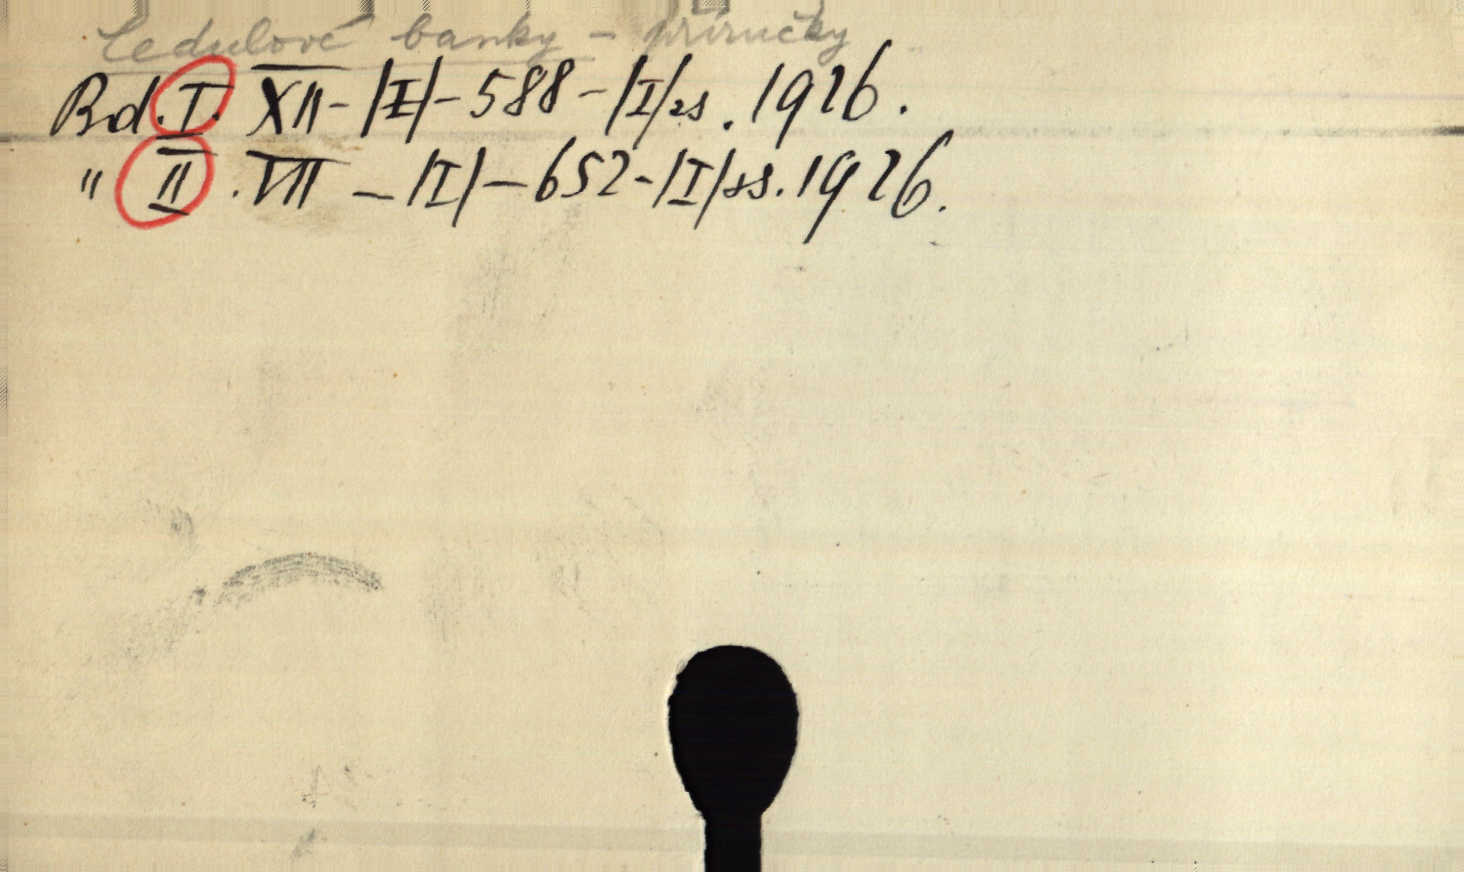 Cedulové banky - příručky
Bd. I. XII - |I| - 588 - |I| ss. 1926.
" II. VII - |I| - 652 - |I| ss. 1926.